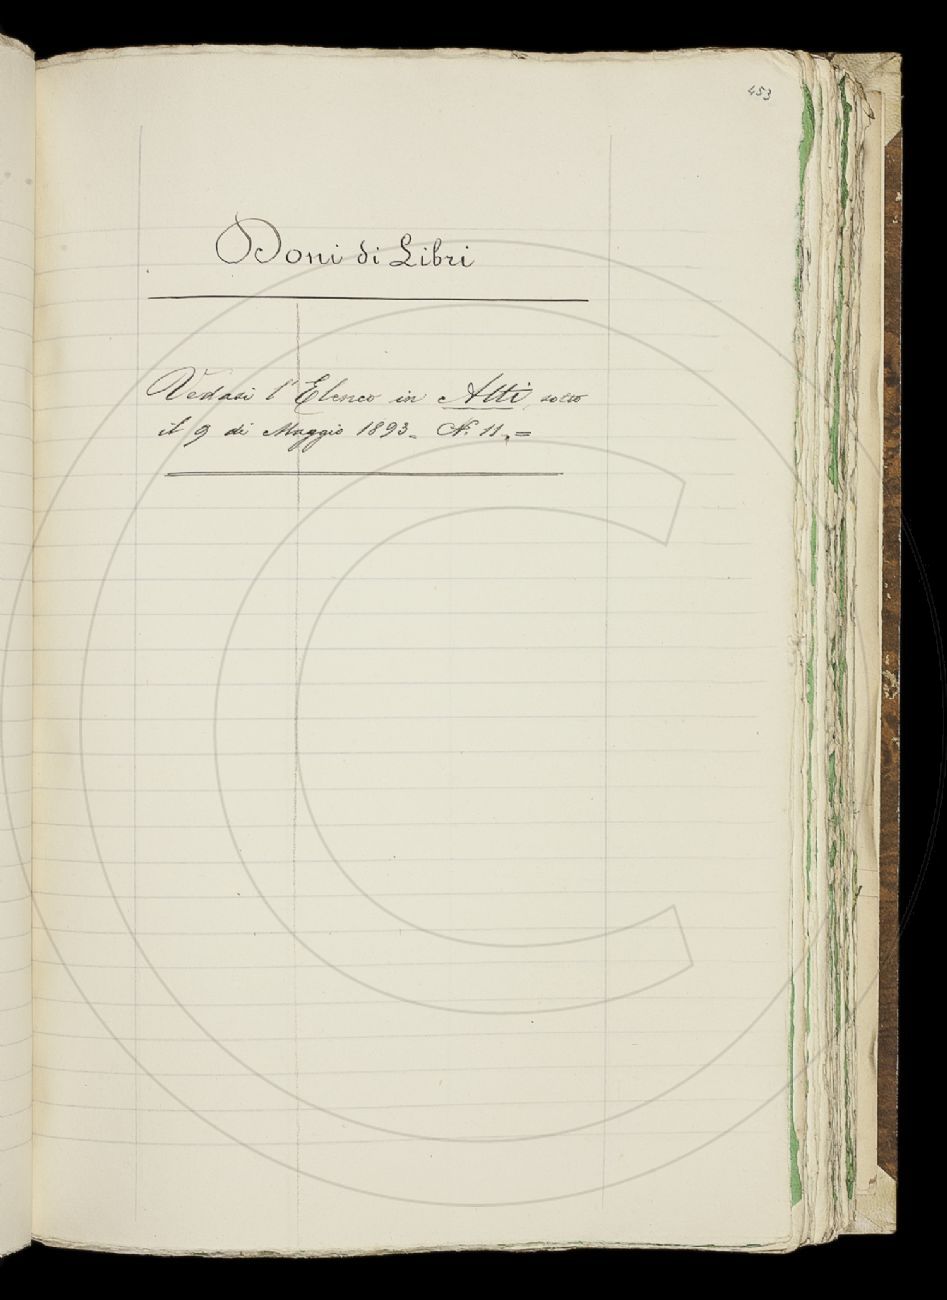 453
Doni di Libri
Vedasi l'Elenco in Atti, sotto
il 9 di Maggio 1893. N. 11. =